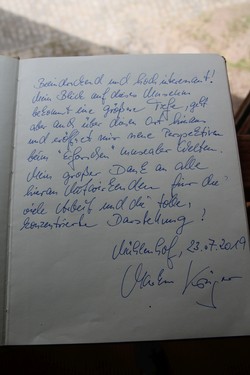 Beeindruckend und hochinteressant!
Mein Blick auf dieses Museum
bekommt eine größere Tiefe, geht
aber auch über diesen Ort hinaus
und eröffnet mir neue Perspektiven
beim "Erforschen" musealer Welten.
Mein großer Dank an alle
hieran Mitwirkenden für die
viele Arbeit und die tolle,
konzentrierte Darstellung!
Mühlenhof, 23.07.2019